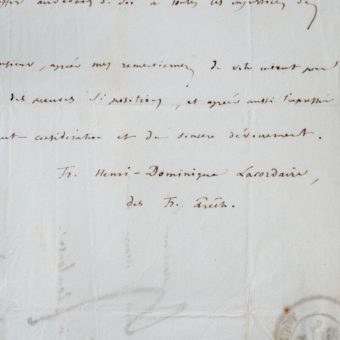 au-dessus de soi à toutes les injustices de
monsieur, agréer mes remerciemens de votre intérêt pour
des preuves si positives, et agréer aussi l'expression
considération et de sincère dévouement.
Fr. Henri-Dominique Lacordaire,
des Fr. Prêch.